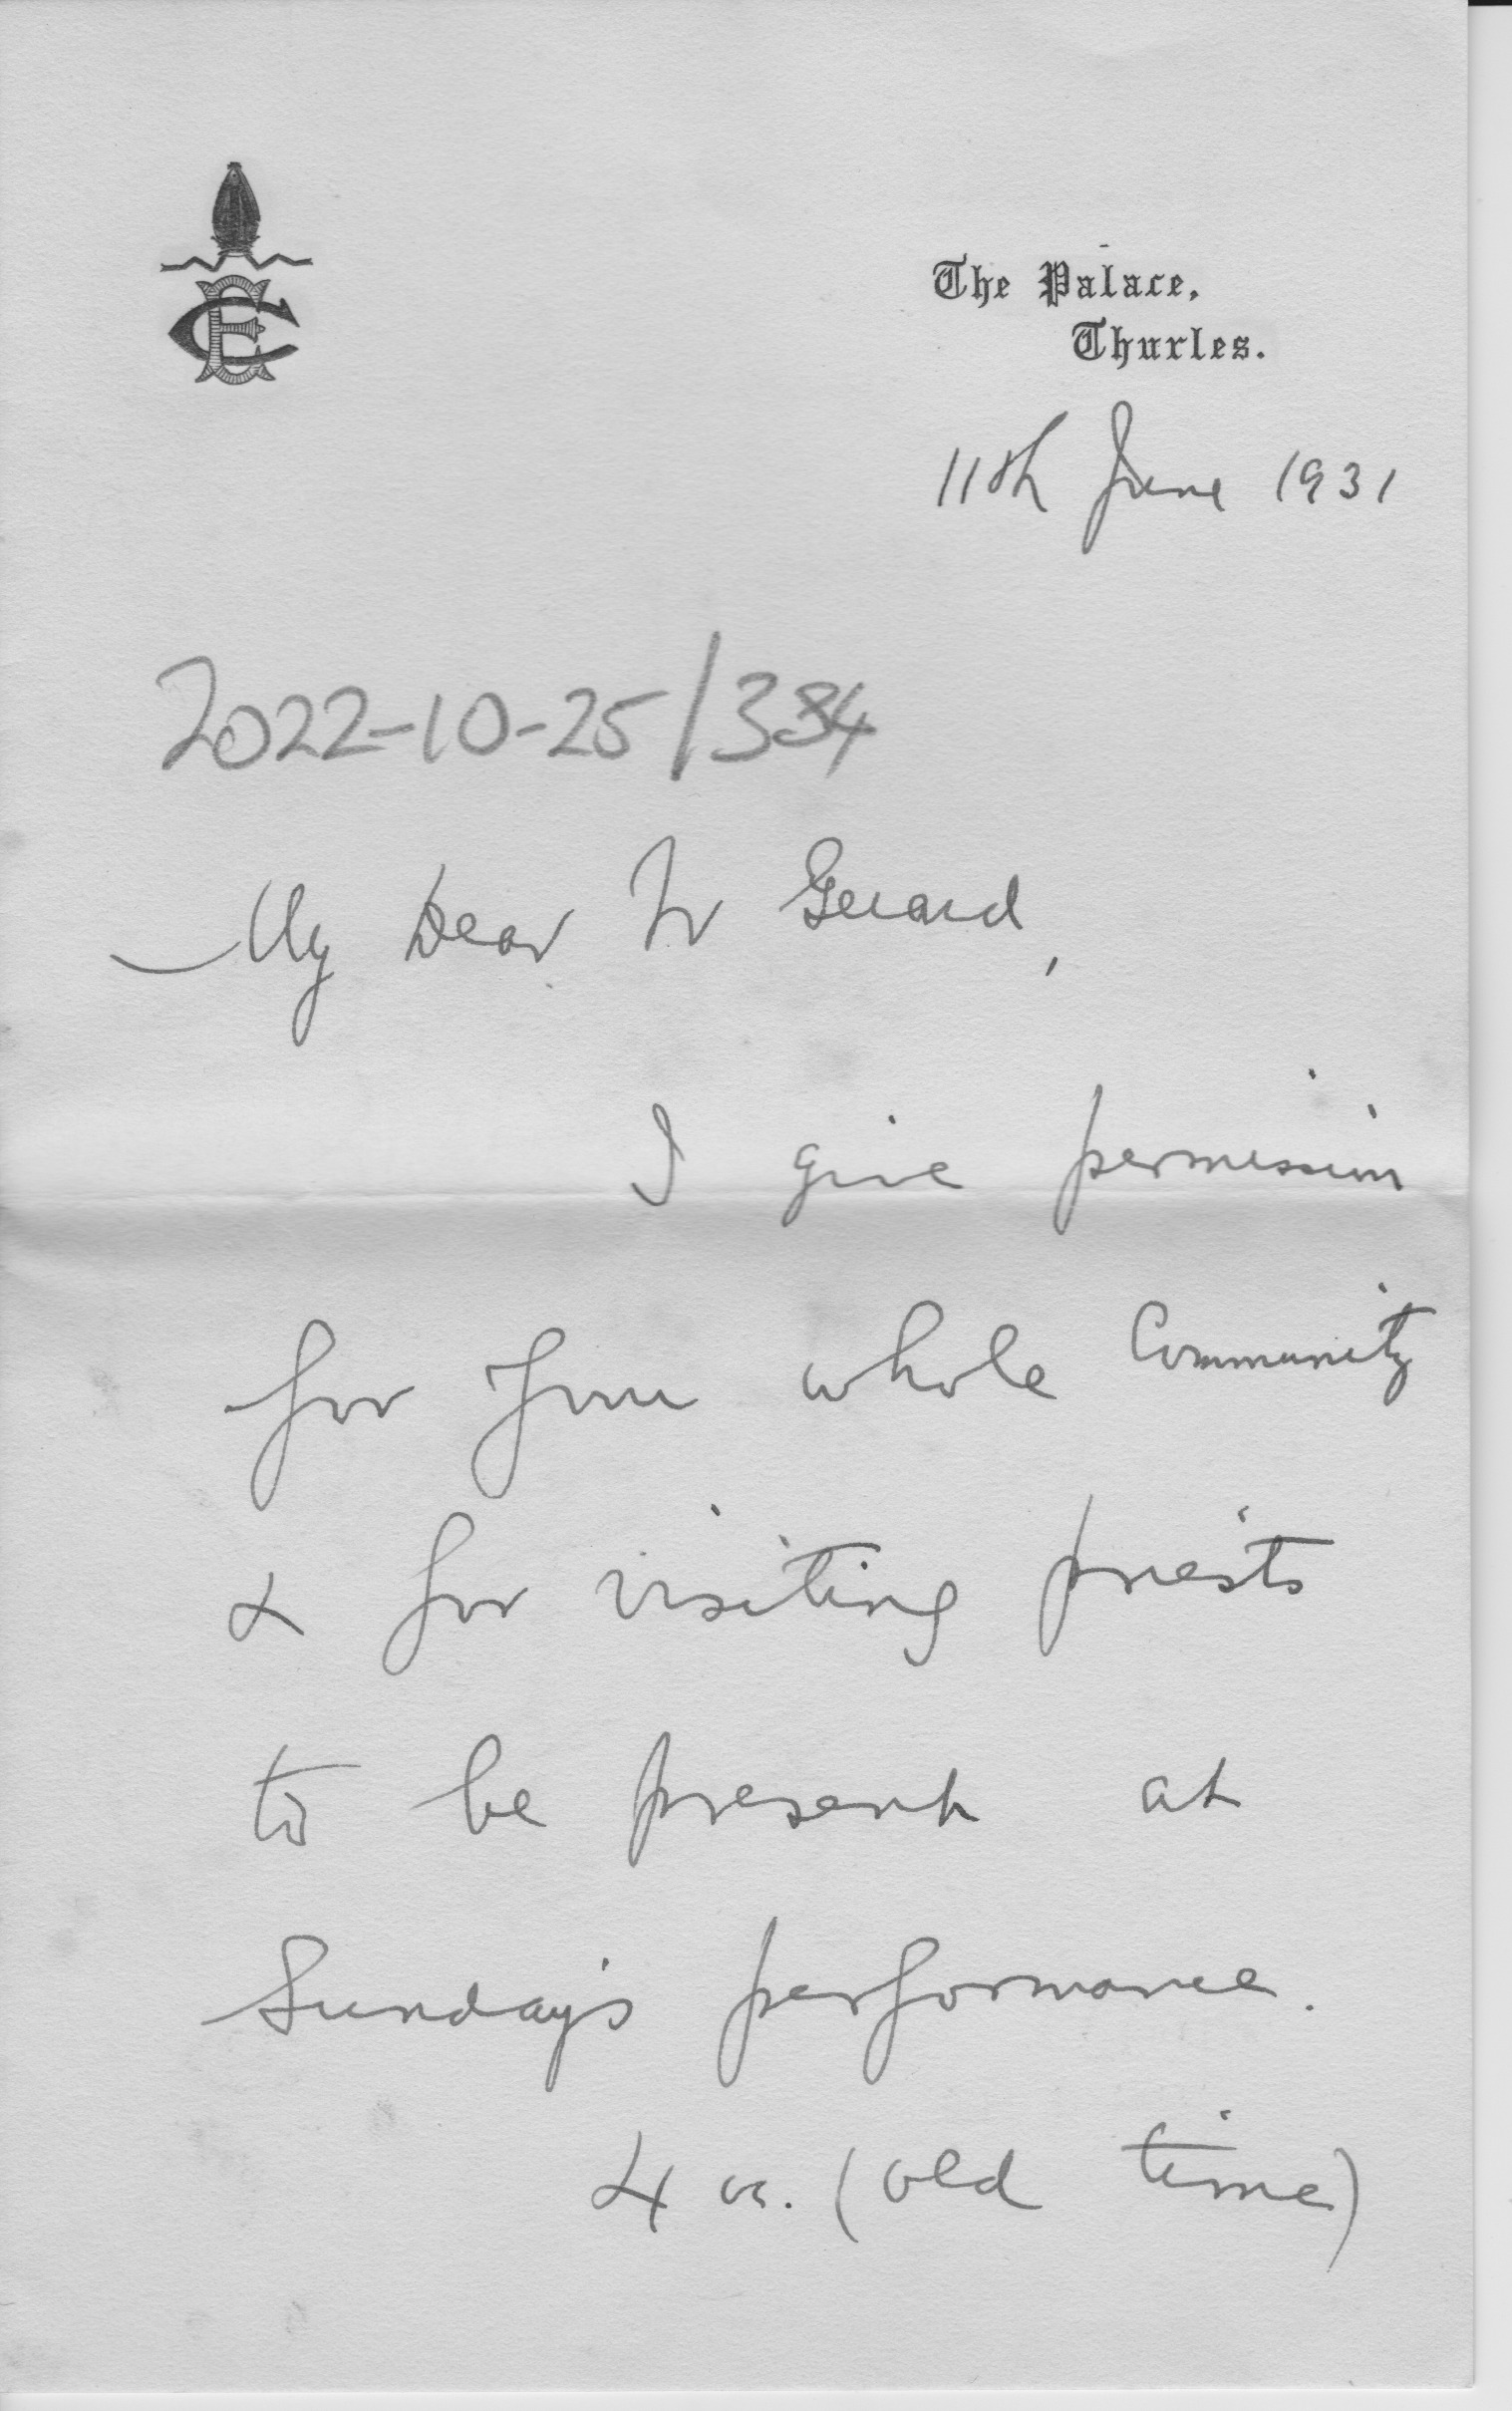 The Palace,
Thurles.
11th June 1931
2022-10-25/334
My Dear Fr Gerard,
I give permission
for your whole Community
& for visiting priests
to be present at
Sunday's performance.
4 (old time)